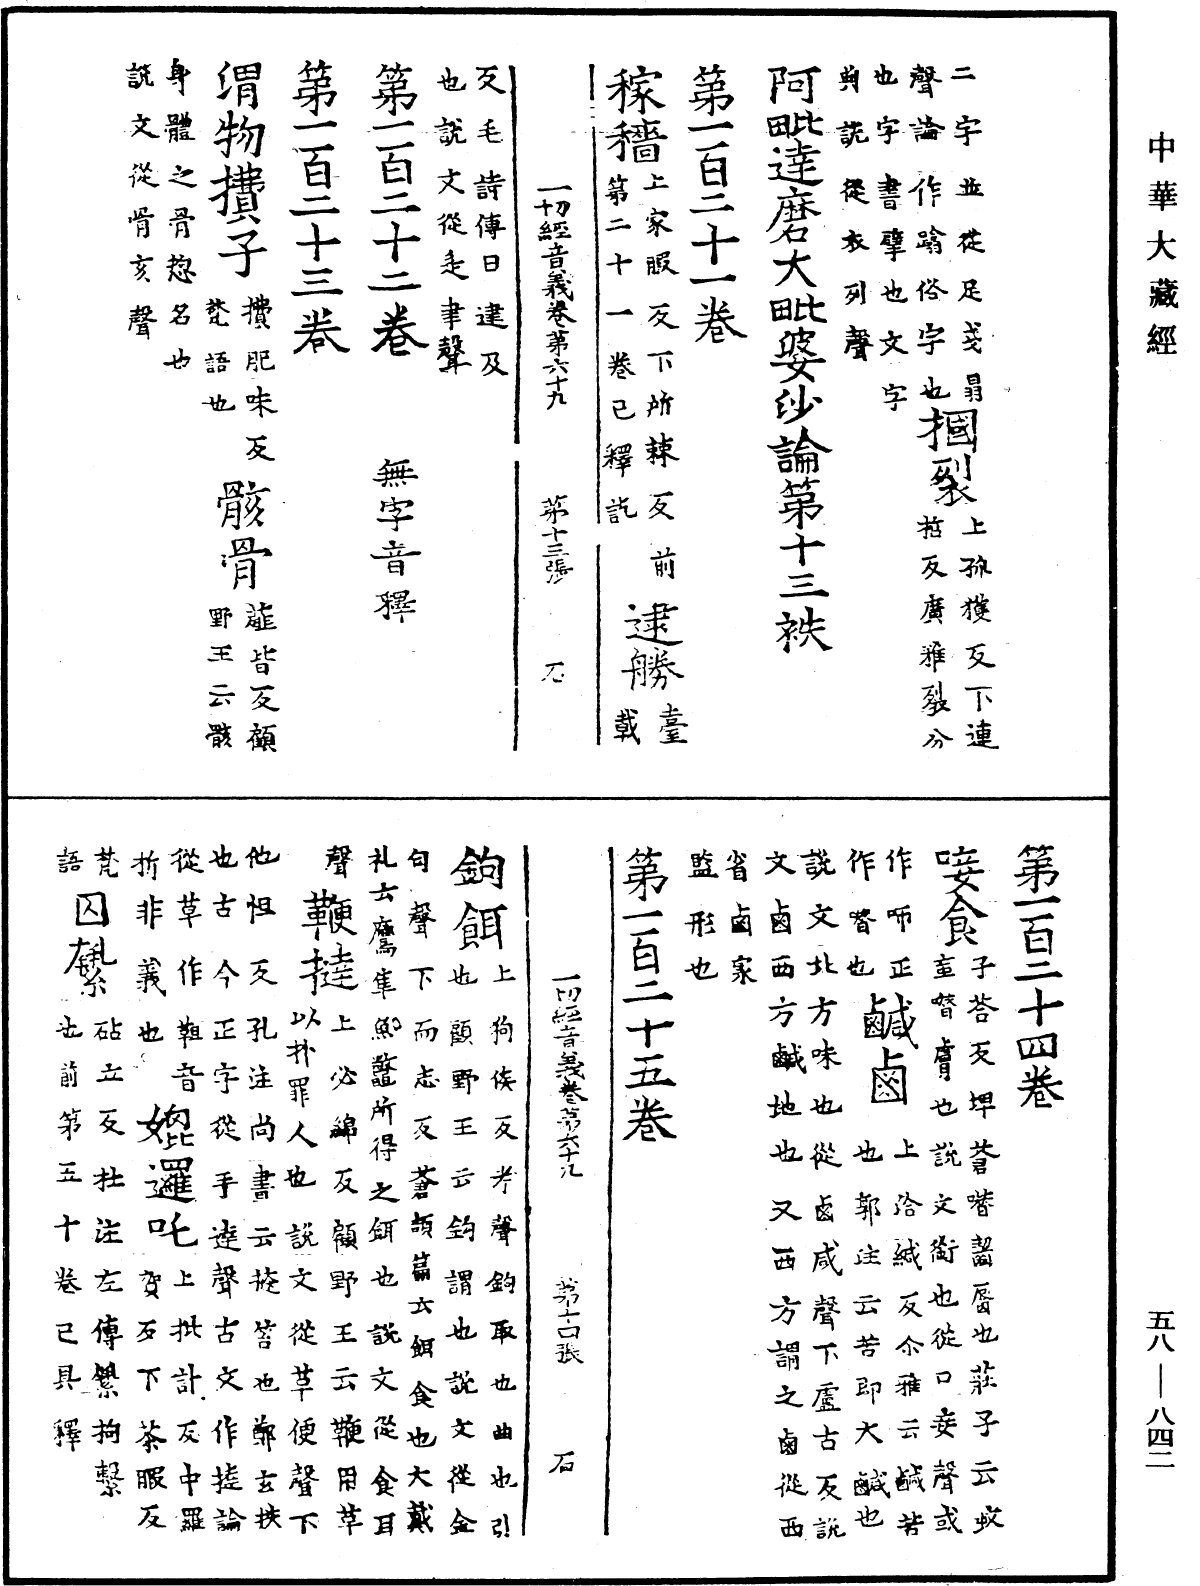 中華大藏經
二字並從足戔
聲論作蹋俗字也
也字書擘也文字
典說從衣列聲
摑裂
上孤獲反下連
哲反廣雅裂分
阿毗達磨大毗婆沙論第十三袟
第一百二十一卷
稼穡
上家暇反下所棘反前
第二十一卷已釋訖
逮勝
臺
戴
一切經音義卷第六十九
第十三張
石
反毛詩傳曰逮及
也說文從辵聿聲
第一百二十二卷
無字音釋
第一百二十三卷
謂物㩌子
㩌肥味反
梵語也
骸骨
諧皆反顧
野王云骸
身體之骨揔名也
說文從骨亥聲
第一百二十四卷
唼食
子荅反埤蒼噆齧脣也莊子云蚊
䖟噆膚也說文銜也從口妾聲或
作咂正
作噆也
鹹鹵
上洽緘反尒雅云鹹苦
也郭注云苦即大鹹也
說文北方味也從鹵咸聲下盧古反說
文鹵西方鹹地也又西方謂之鹵從西
省鹵象
監形也
第一百二十五卷
一切經音義卷第六十九
第十四張
石
鉤餌
上狗侯反考聲鉤取也曲也引
也顧野王云鉤謂也說文從金
句聲下而志反蒼頡篇云餌食也大戴
礼云鷹隼魚鼈所得之餌也說文從食耳
聲
鞭撻
上必綿反顧野王云鞭用革
以扑罪人也說文從革便聲下
他怛反孔注尚書云撻笞也鄭玄抶
也古今正字從手達聲古文作㧹論
從革作靼音
折非義也
媲邏吒
上批計反中羅
賀反下茶暇反
梵
語
囚縶
砧立反杜注左傳縶拘繫
也前第五十卷已具釋
五八—八四二